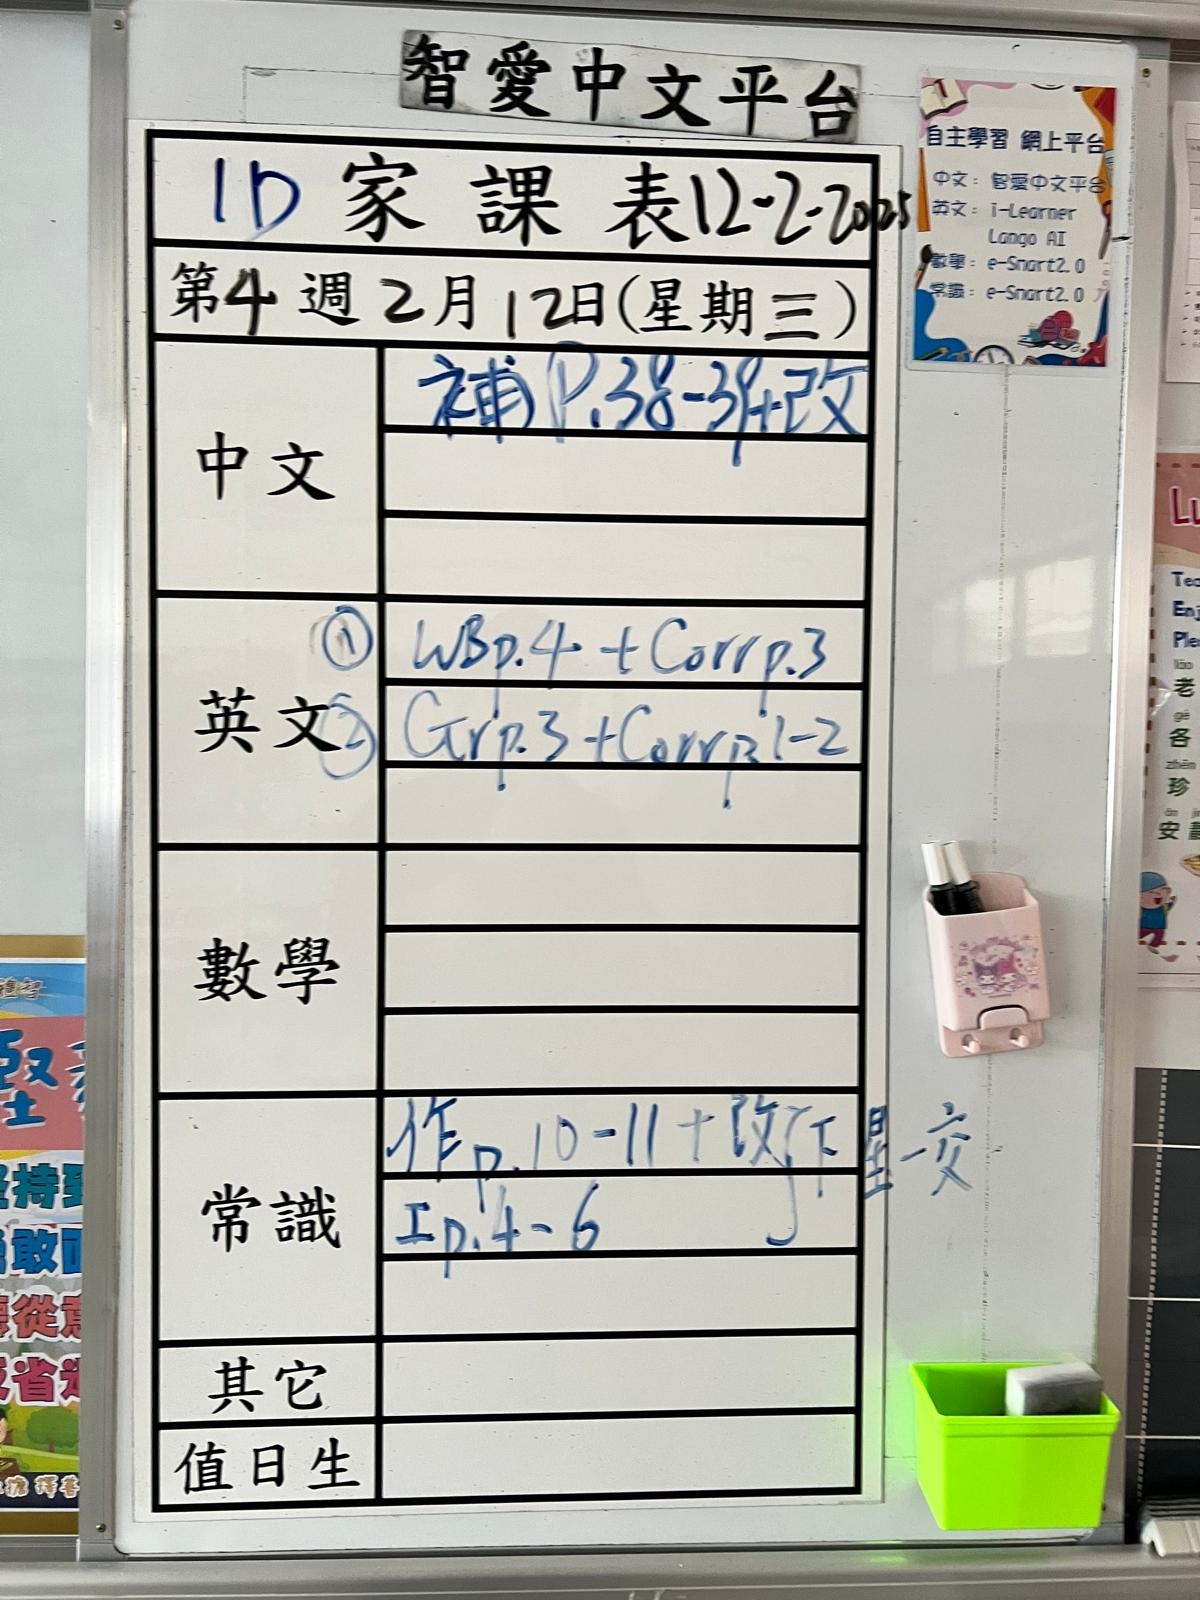 智愛中文平台
1D 家課表 12-2-2025
第4週2月12日(星期三)
中文
補P.38-39+改
英文
① WBp.4 + Corrp.3
② Grp.3 + Corrp.1-2
數學
常識
作p.10-11+改 下星一交
工p.4-6
其它
值日生
自主學習 網上平台
中文：智愛中文平台
英文：i-Learner
Lango AI
數學：e-Smart2.0
常識：e-Smart2.0
老
各
zhēn
珍
安
堅持
敢
從
省